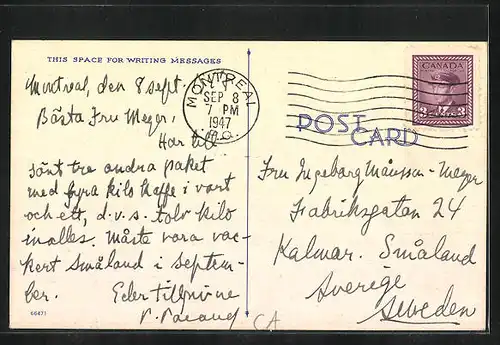 THIS SPACE FOR WRITING MESSAGES
Montreal, den 8 sept.
Bästa Fru Meyer,
Har till
sänt tre andra paket
med fyra kilo kaffe i vart
och ett, d.v.s. tolv kilo
inalles. Måste vara vac-
kert Småland i septem-
ber. Eder tillgivne
66471
CA
MONTREAL
SEP 8
7 PM
1947
P.Q.
CANADA
3 3
POST
CARD
Fru Ingeborg Månsson-Meyer
Fabriksgatan 24
Kalmar. Småland
Sverige
Sweden